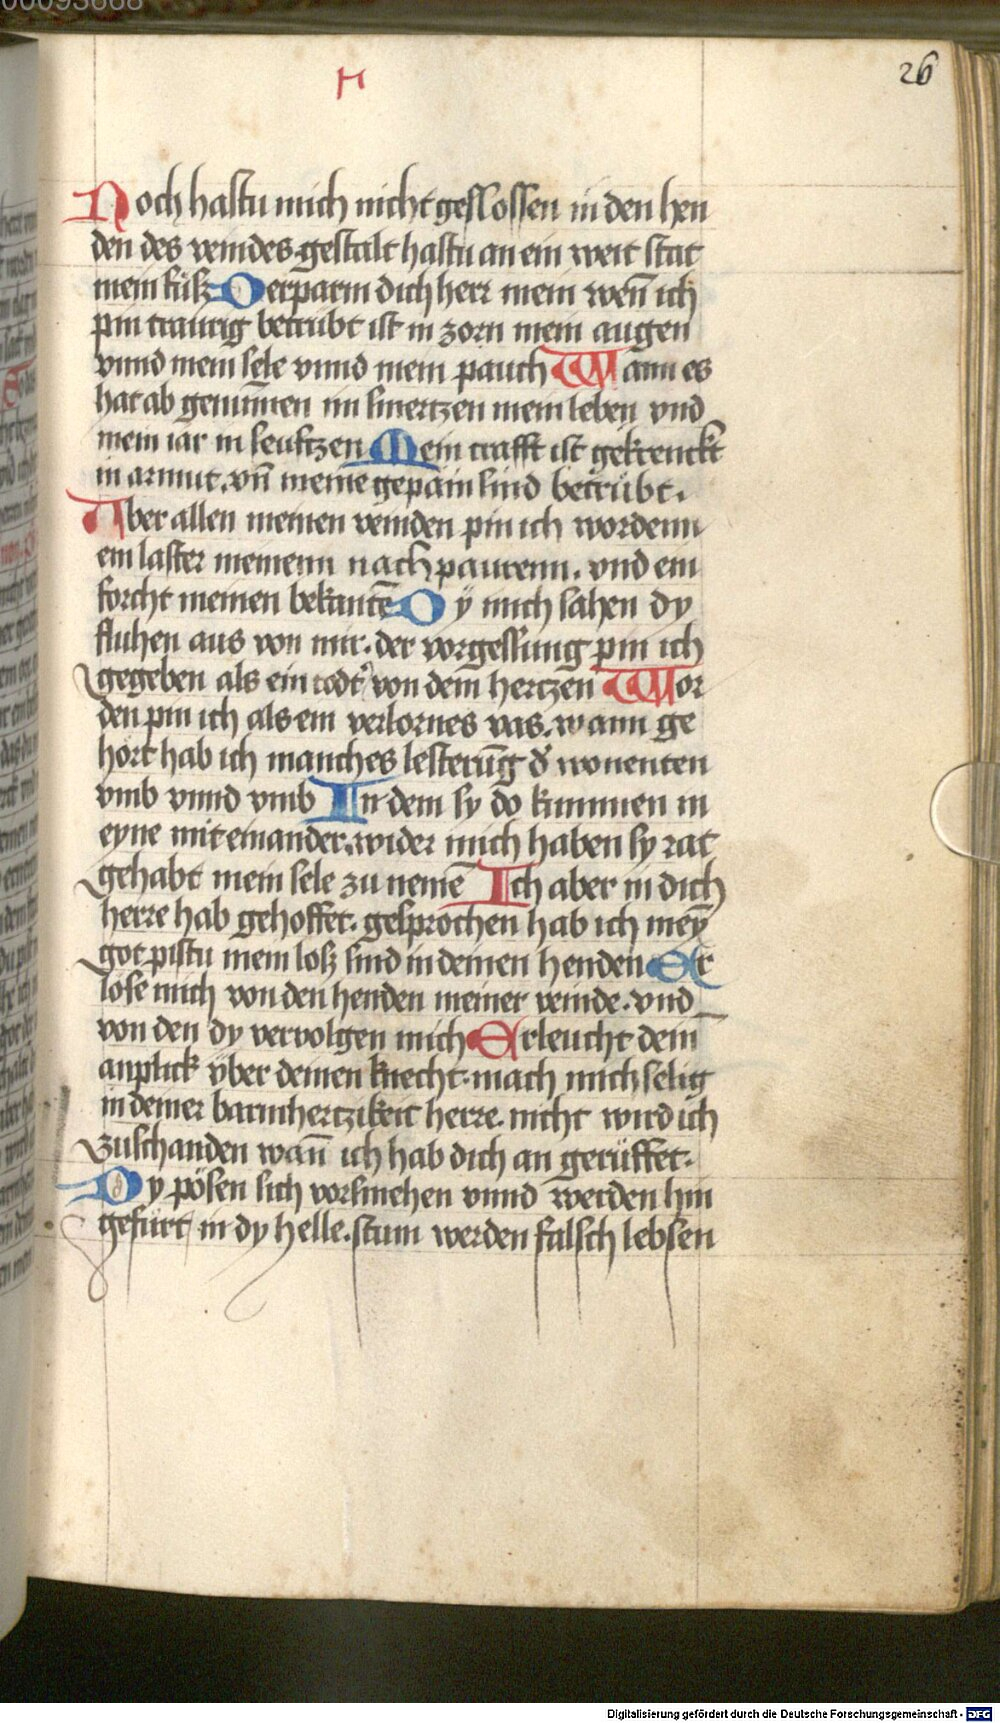 00093668
26
Noch hastu mich nicht geslossen in den hen
den des veindes gestalt hastu an ein weit stat
mein füsz Oerparm dich herr mein wen̄ ich
pin traurig betrübt ist in zorn mein augen
vnnd mein sele vnnd mein pauch Wann es
hat ab genum̄en im smertzen mein leben vnd
mein iar in seuftzen Mein crafft ist gekrenckt
in armut. vn̄ meine gepain sind betrübt.
Aber allen meinen veinden pin ich wordenn
ein laster meinenn nach paurenn. vnd ein
forcht meinen bekantē Dÿ mich sahen dy
fluhen aus von mir. der vorgessung pin ich
gegeben als ein todt͛ von dem hertzen Wor
den pin ich als ein verlornes vas. wann ge
hört hab ich manches lesterūg d͛ wonenten
vmb vnnd vmb In dem sy do kummen in
eyne mit einander. wider mich haben sy rat
gehabt mein sele zu nemē Ich aber in dich
herre hab gehoffet. gesprochen hab ich meȳ
got pistu mein losz sind in deinen henden Er
löse mich von den henden meiner veinde. vnd
von den dy vervolgen mich Erleucht dein
anplick vber deinen knecht. mach mich selig
in deiner barmhertzikeit herre. nicht wird ich
zuschanden wan̄ ich hab dich an gerüffet.
Dy pösen sich vorsmehen vnnd werden hin
gefürt in dy helle. stum werden falsch lebsen
Digitalisierung gefördert durch die Deutsche Forschungsgemeinschaft - DFG